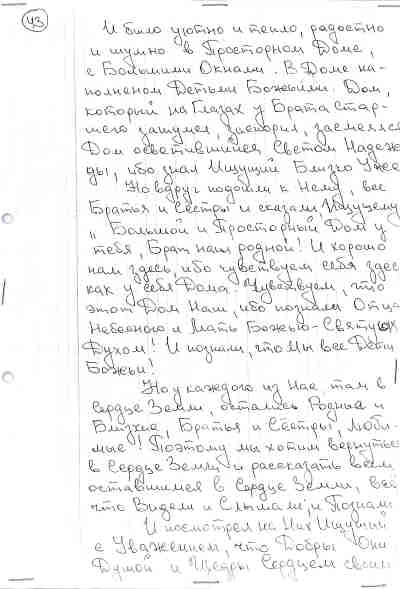 43
И было уютно и тепло, радостно
и шумно в Просторном Доме,
с Большими Окнами. В Доме на-
полненом Детьми Божьими. Дом,
который на Глазах у Брата Стар-
шего зашумел, заговорил, засмеялся
Дом осветившийся Светом Надеж-
ды, ибо знал Ищущий Близко Уже
Но вдруг подошли к Нему, все
Братья и Сёстры и сказали Ищущему
" Большой и Просторный Дом у
тебя, Брат наш родной! И хорошо
нам здесь, ибо чувствуем себя здесь
как у себя Дома. Чувствуем, что
этот Дом Наш, ибо познали Отца
Небесного и Мать Божью - Святых
Духом! И познали, что Мы все Дети
Божьи!
Но у каждого из Нас там в
Сердце Земли, остались Родные и
Близкие, Братья и Сёстры, люби-
мые! Поэтому мы хотим вернуться
в Сердце Земли и рассказать всем
оставшимся в Сердце Земли, всё
что Видели и Слышали, и Познали
И посмотрел на Них Ищущий
с Уважением, что Добры Они
Душой и Щедры Сердцем своим